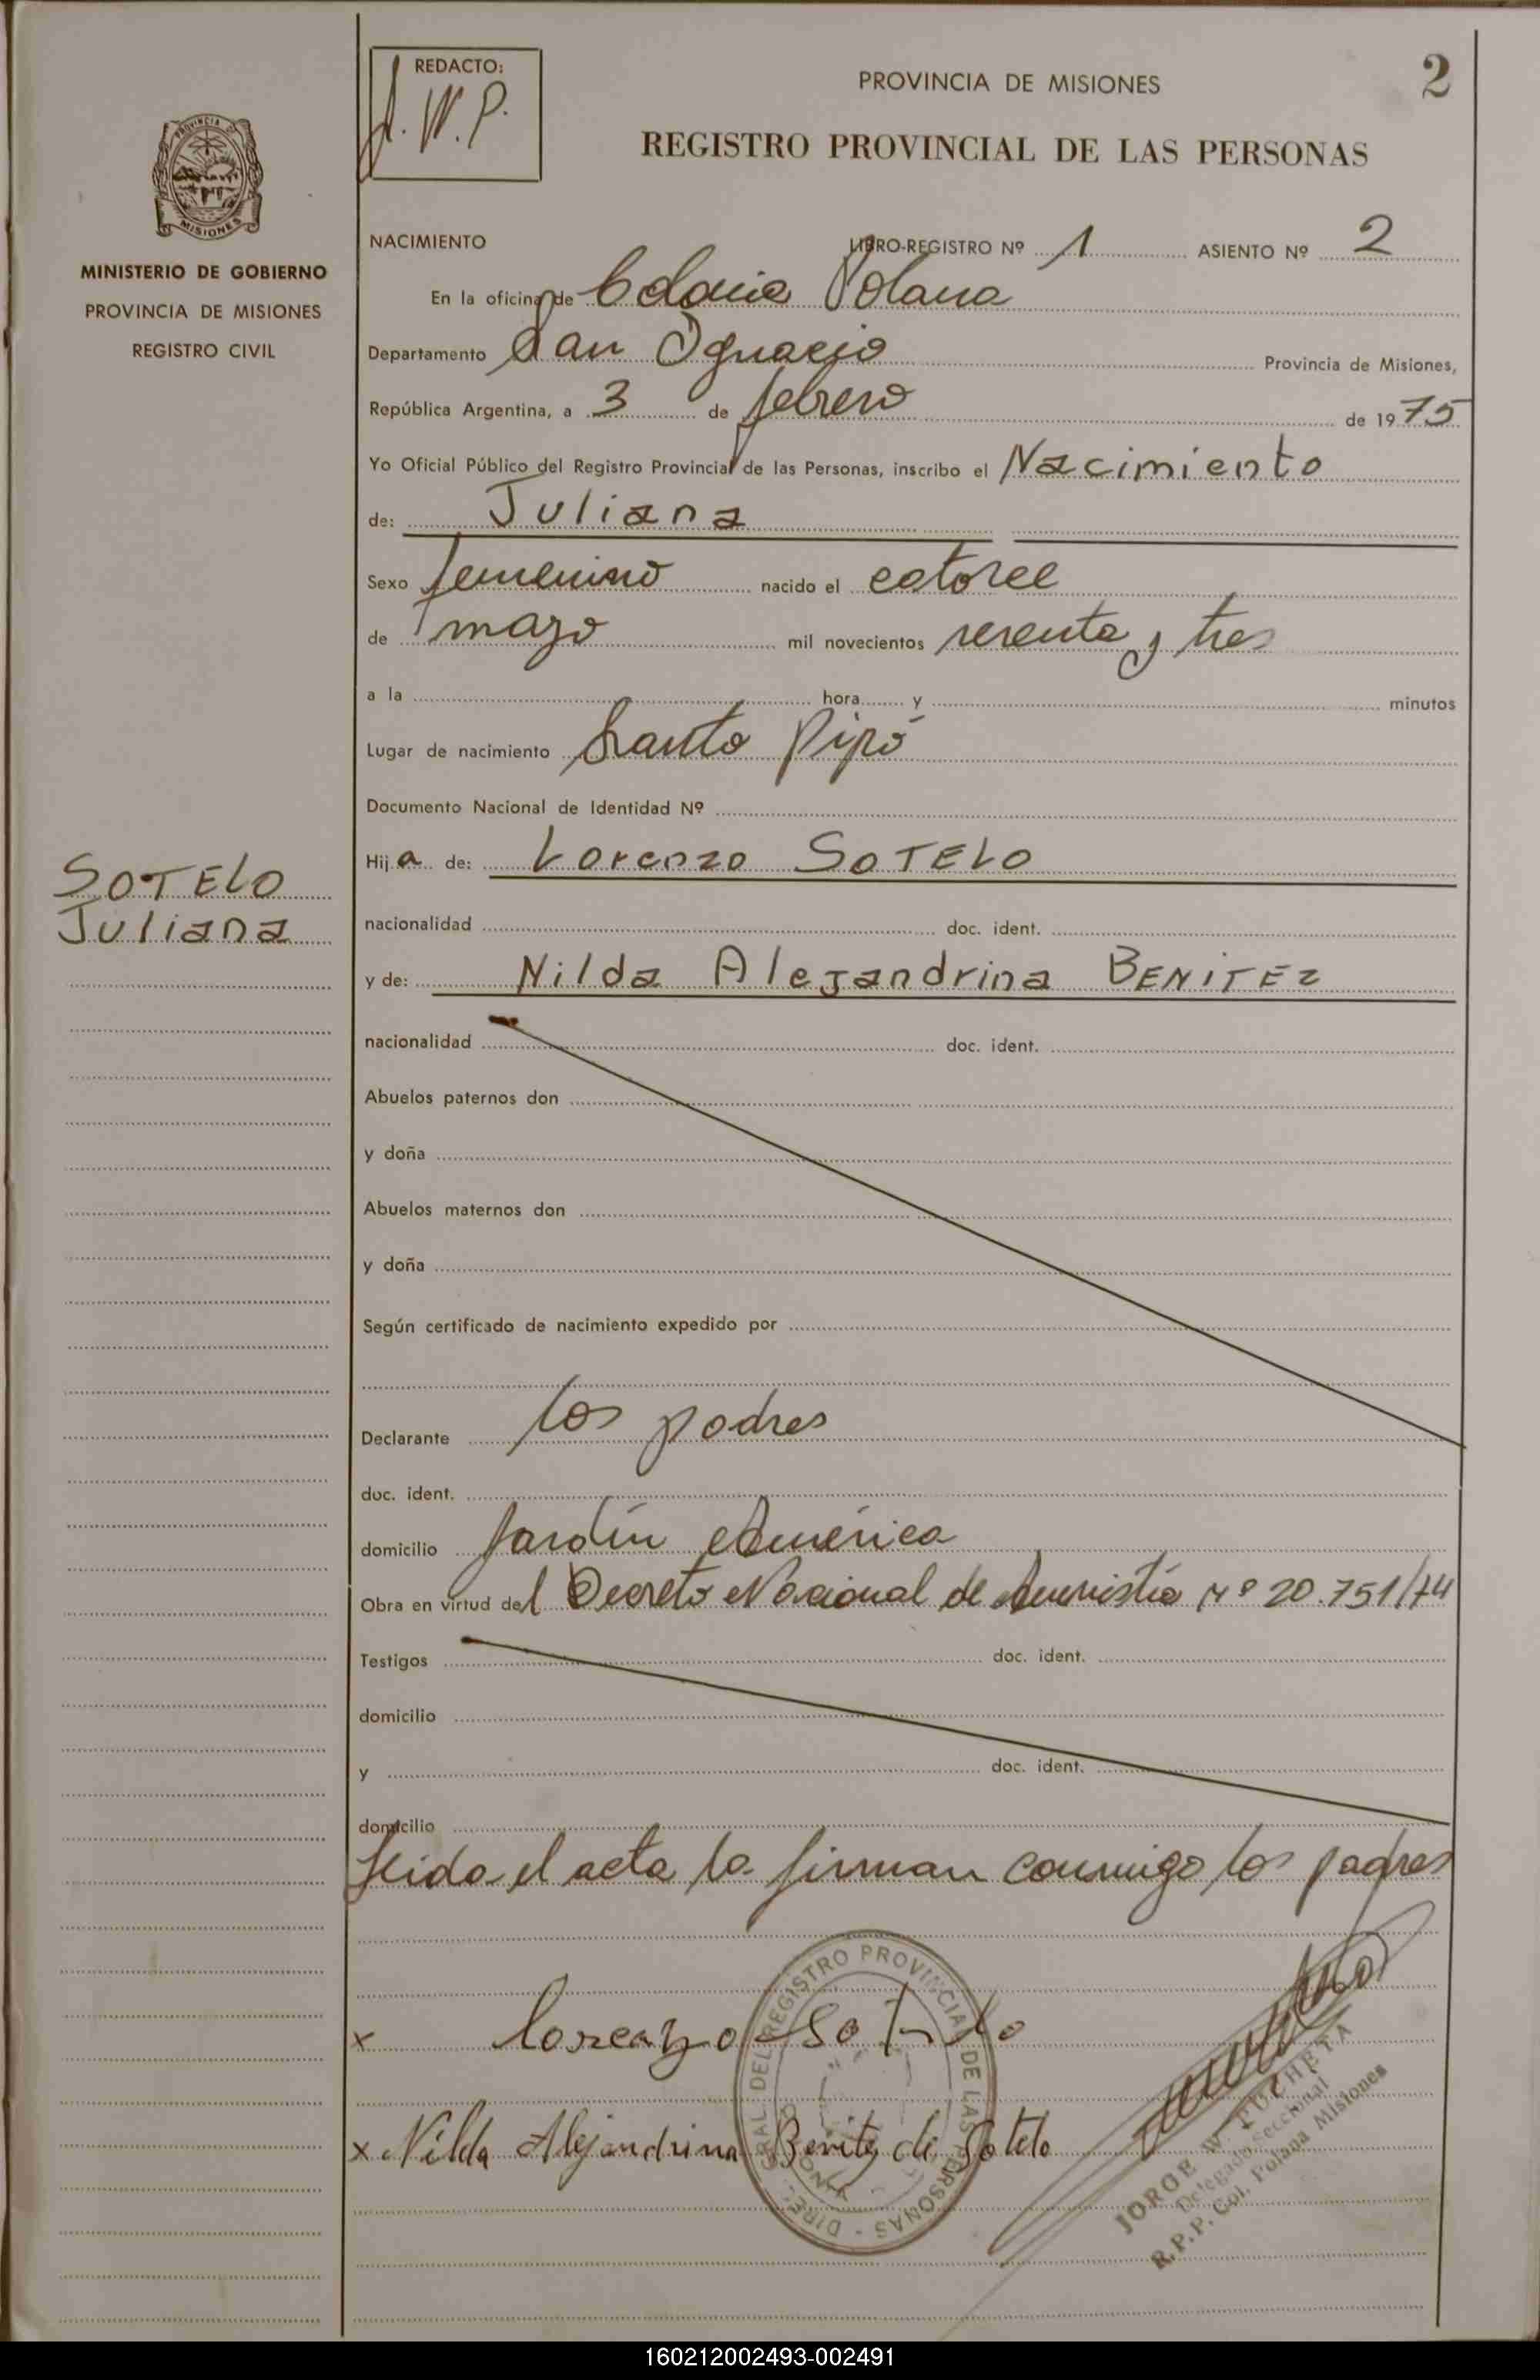 REDACTO:
J. W. P.
PROVINCIA DE MISIONES
2
REGISTRO PROVINCIAL DE LAS PERSONAS
PROVINCIA DE
MISIONES
MINISTERIO DE GOBIERNO
PROVINCIA DE MISIONES
REGISTRO CIVIL
NACIMIENTO LIBRO-REGISTRO Nº 1 ASIENTO Nº 2
En la oficina de Colonia Polana
Departamento San Ignacio Provincia de Misiones,
República Argentina, a 3 de febrero de 1975
Yo Oficial Público del Registro Provincial de las Personas, inscribo el Nacimiento
de: Juliana
Sexo femenino nacido el catorce
de mayo mil novecientos sesenta y tres
a la hora y minutos
Lugar de nacimiento Santo Pipó
Documento Nacional de Identidad Nº
Hija de: Lorenzo SOTELO
SOTELO
Juliana
nacionalidad doc. ident.
y de: Nilda Alejandrina BENITEZ
nacionalidad doc. ident.
Abuelos paternos don
y doña
Abuelos maternos don
y doña
Según certificado de nacimiento expedido por
Declarante los padres
doc. ident.
domicilio Jardín América
Obra en virtud del Decreto Nacional de Amnistía Nº 20.751/74
Testigos doc. ident.
domicilio
y doc. ident.
domicilio
Leida el acta la firman conmigo los padres
x Lorenzo Sotelo
x Nilda Alejandrina Benitez de Sotelo
DIREC. GRAL. DEL REGISTRO PROVINCIAL DE LAS PERSONAS
JORGE W. PUCHETA
Delegado Seccional
R.P.P. Col. Polana Misiones
160212002493-002491